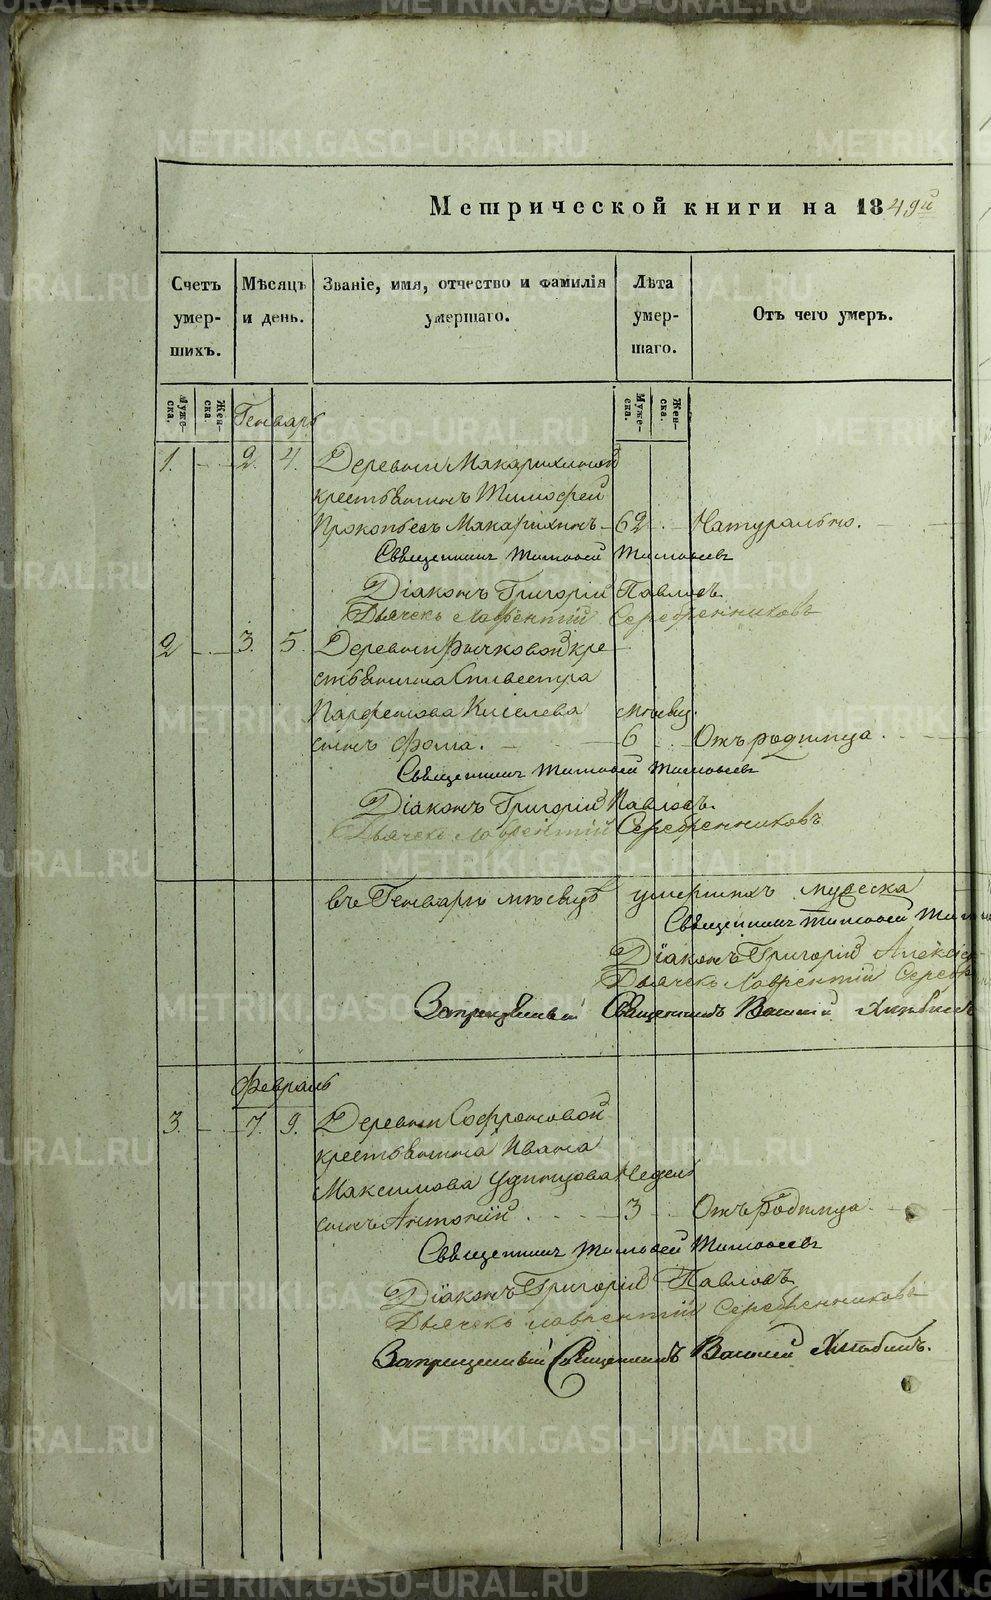 METRIKI.GASO-URAL.RU
Метрической книги на 1849й
Счетъ умер- шихъ.
Мѣсяцъ и день.
Званіе, имя, отчество и фамилія умершаго.
Лѣта умер- шаго.
Отъ чего умеръ.
Муже- ска.
Жен- ска.
Муже- ска.
Жен- ска.
Генварь
1. 2. 4. Деревни Макарихиной
крестьянинъ Тимофей
Прокопьевъ Макарихинъ 62 Натурально.
Священникъ Тимофей Тимофеевъ
Діаконъ Григорій Павловъ.
Дьячекъ Лаврентій Серебренниковъ
2 3. 5. Деревни Рычковой кре
стьянина Сильвестра
Парфенова Киселева мѣсяц.
сынъ Фома. 6 Отъ родимца.
Священникъ Тимофей Тимофеевъ
Діаконъ Григорій Павловъ.
Дьячекъ Лаврентій Серебренниковъ
въ Генварѣ мѣсяцѣ умершихъ мужеска
Священникъ Тимофей
Діаконъ Григорій
Дьячекъ Лаврентій
Запрещенный Священникъ
Февраль
3. 7. 9. Деревни Софроновой
крестьянина Ивана
Максимова Удинцова недель
сынъ Антоній 3 Отъ родимца
Священникъ Тимофей Тимофеевъ
Діаконъ Григорій Павловъ
Дьячекъ Лаврентій Серебренниковъ
Запрещенный Священникъ